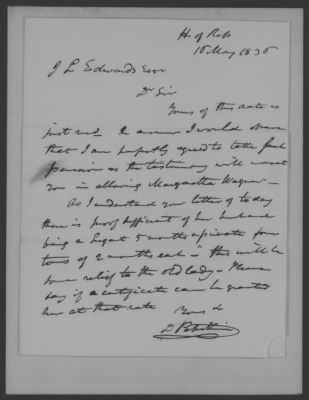 H. of Rep
10 May 1838
J L Edwards Esqr
Dr Sir
Yours of this date is
just recd. I answer I would observe
that I am perfectly agreed to take such
pension as the testimony will warrant
you in allowing Margaretta Wagner —
As I understand your letter of to day
there is proof sufficient of her husband
being a Sergt 5 months & private four
tours of 2 months each — this will be
some relief to the old lady — Please
say if a certificate can be granted
her at that rate
Yours &